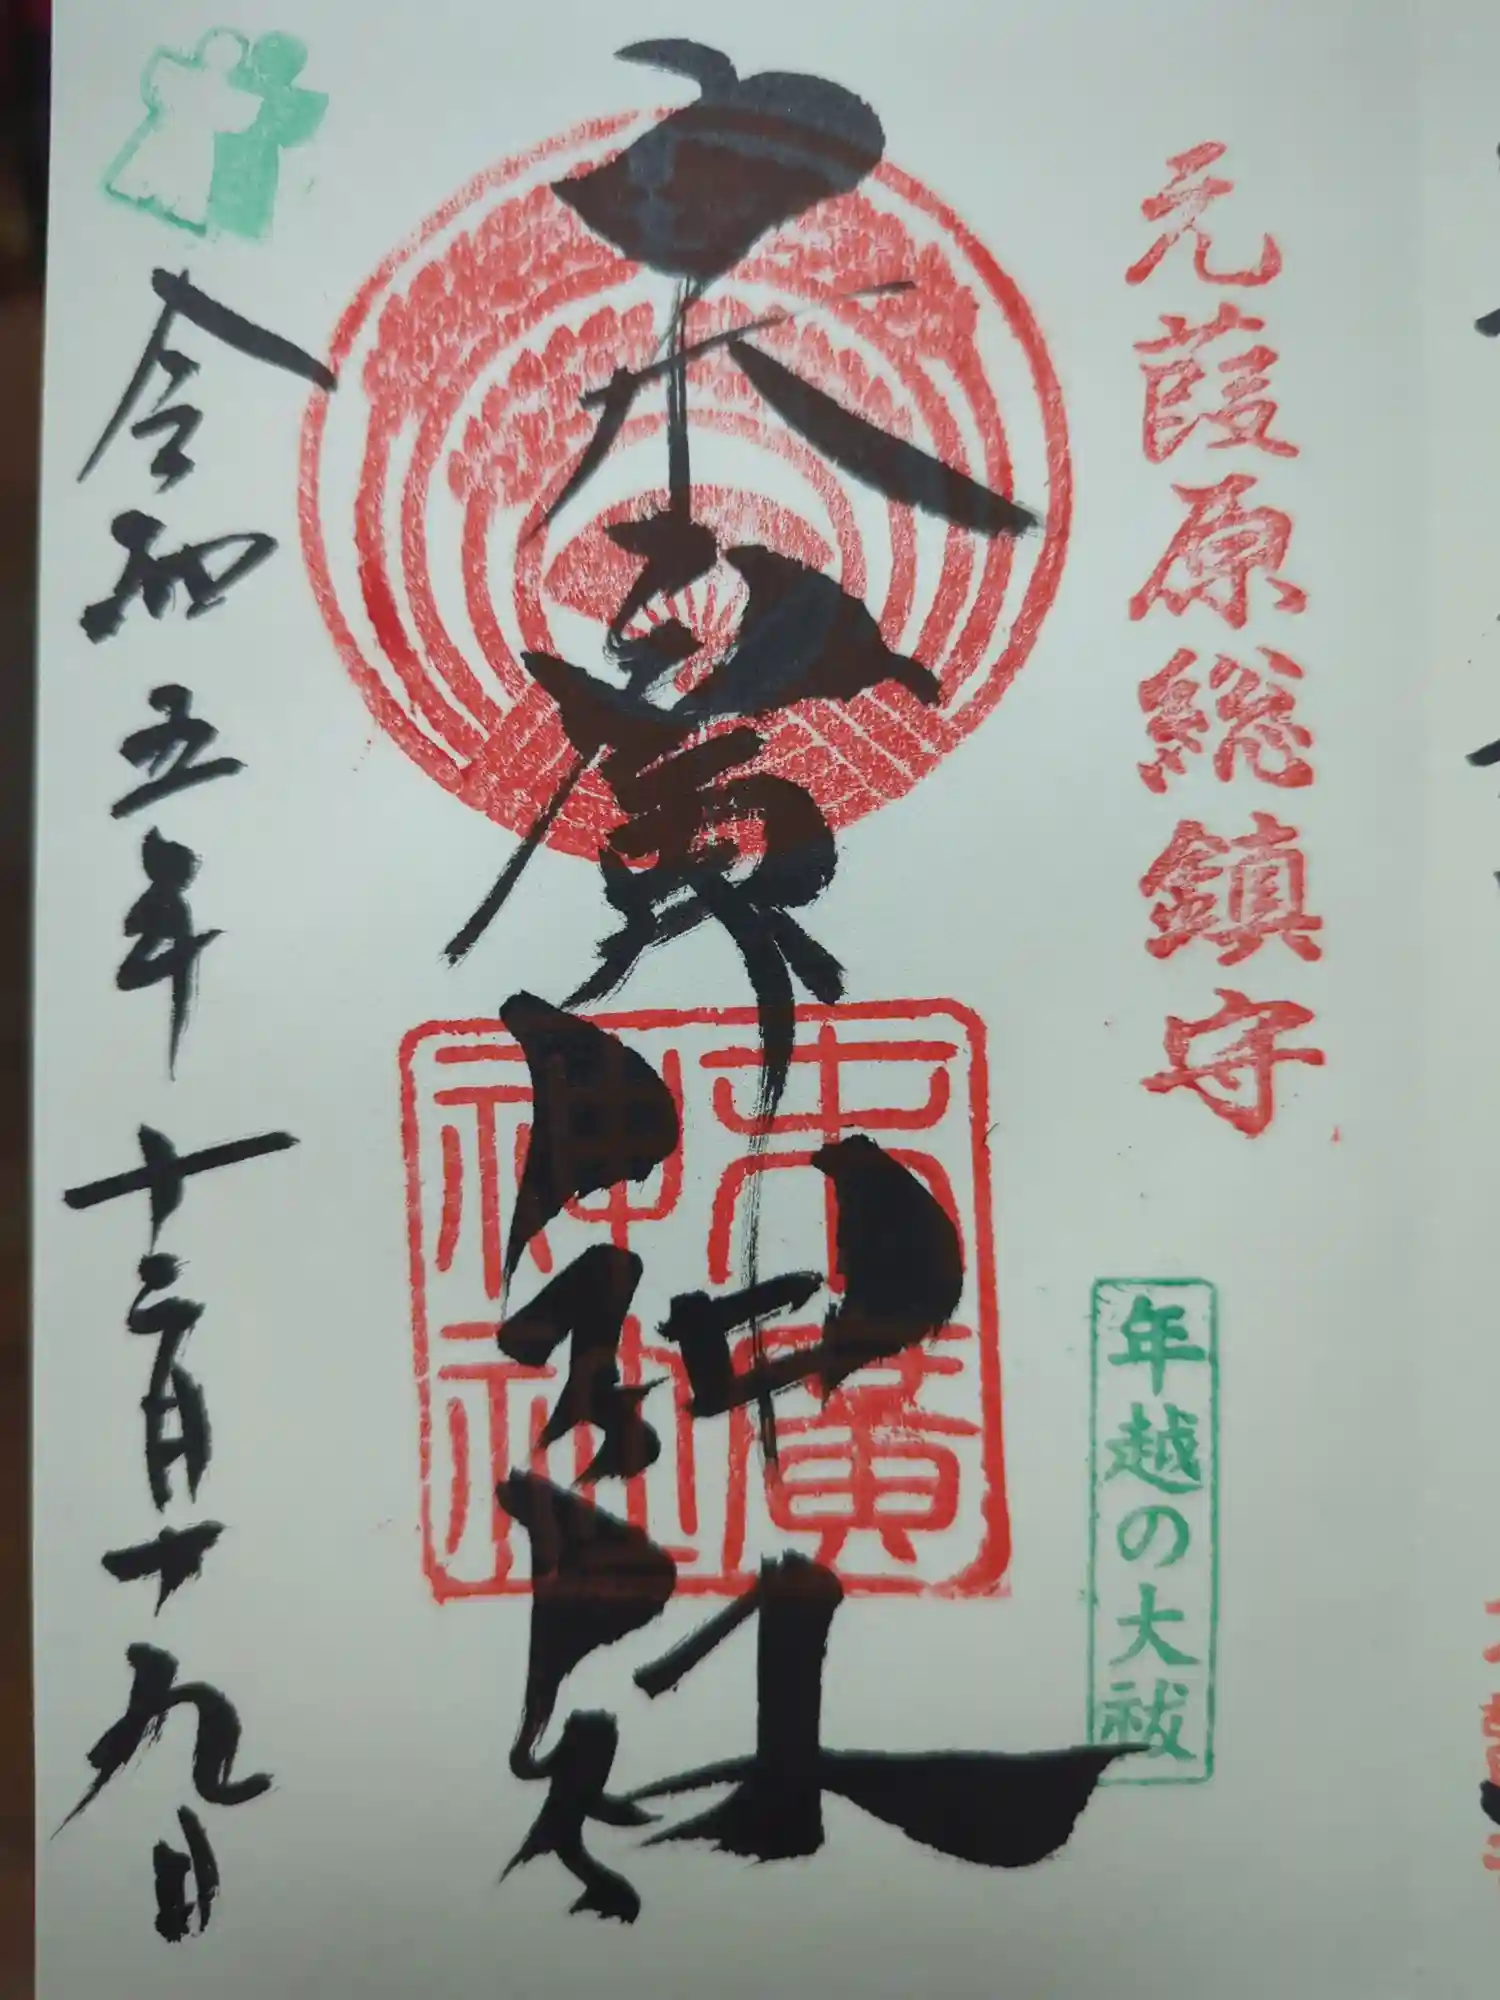 元葭原総鎮守
年越の大祓
末廣神社
末廣
神社
令和五年十二月十九日